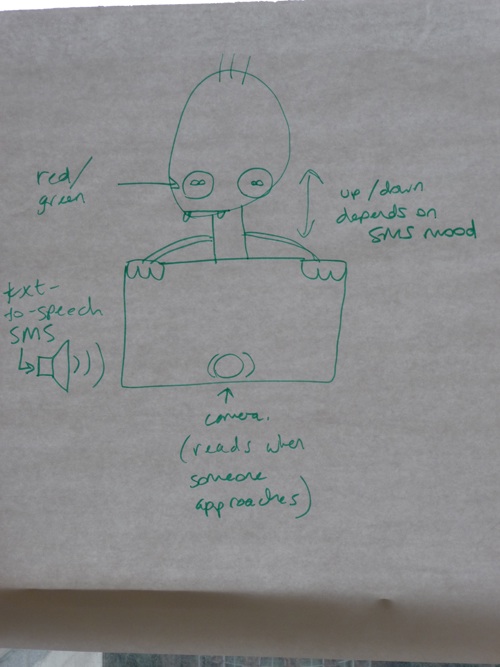 red/
green
up/down
depends on
SMS mood
txt-
to-speech
SMS
camera.
(reads when
someone
approaches)